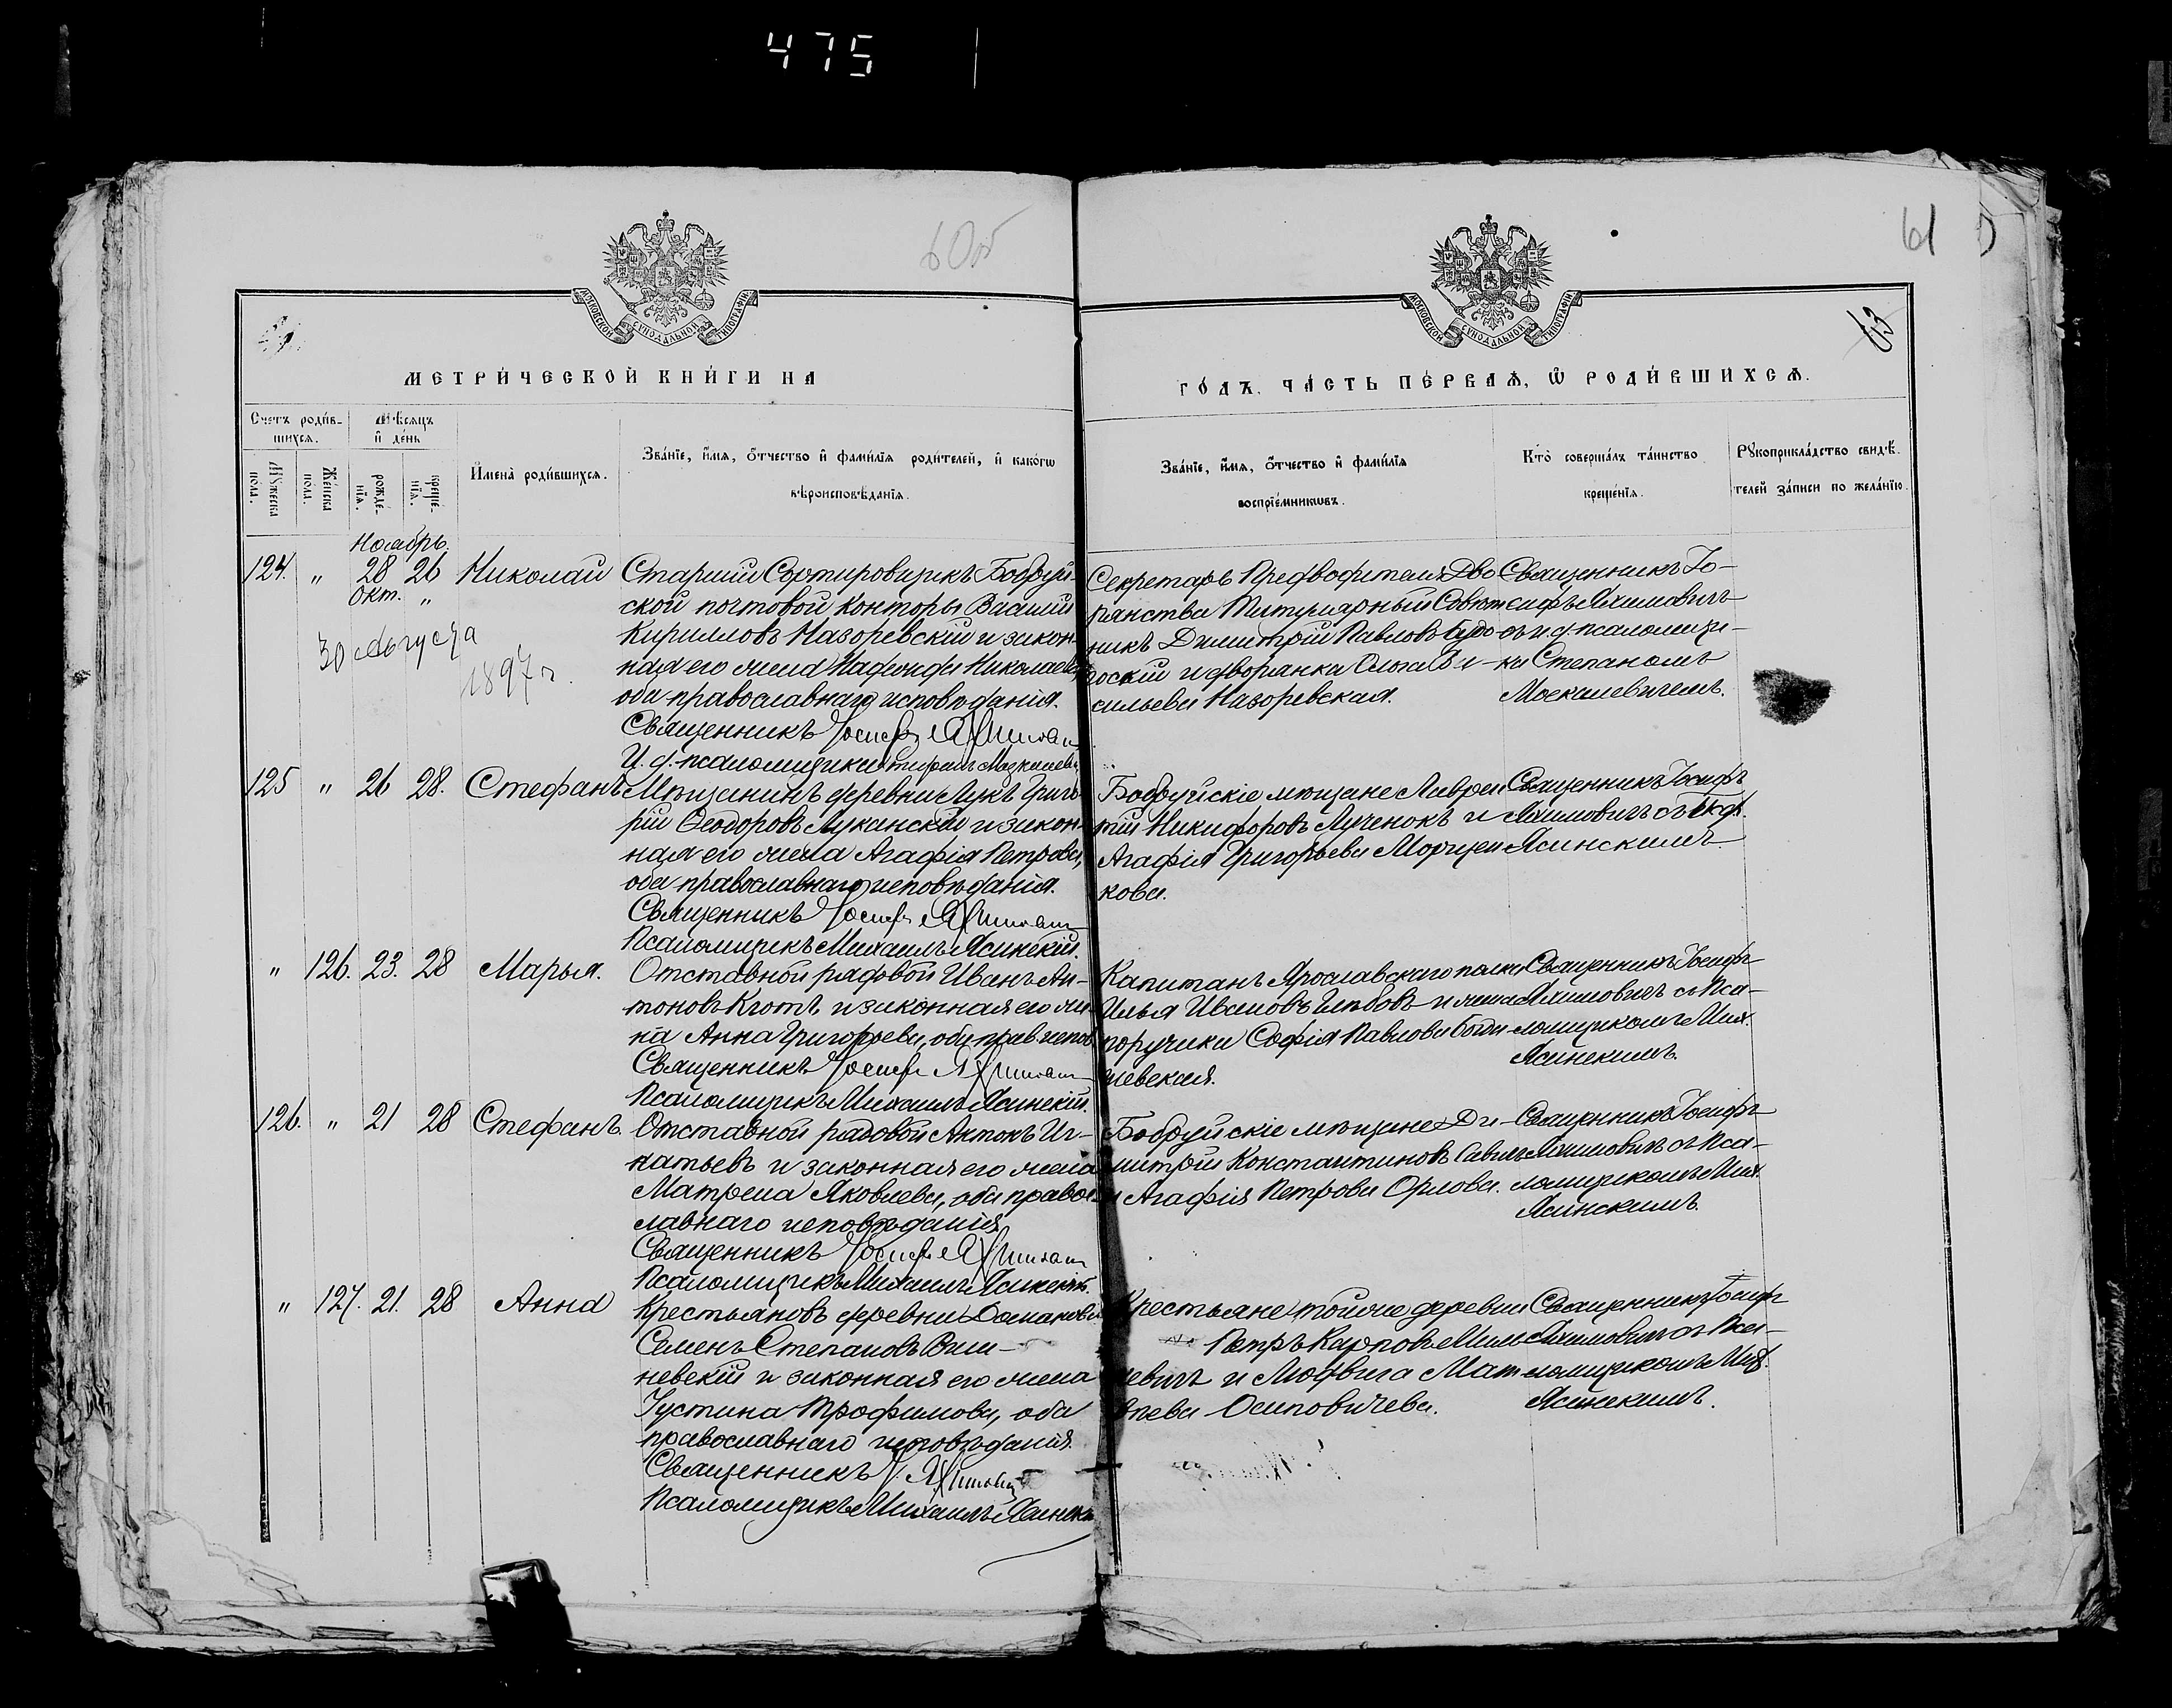 475
60об
61
63
МОСКОВСКОЙ СѴНОДАЛЬНОЙ ТИПОГРАФІИ
МОСКОВСКОЙ СѴНОДАЛЬНОЙ ТИПОГРАФІИ
МЕТРИ́ЧЕСКОЙ КНИ́ГИ НА
ГО́ДЪ, ЧА́СТЬ ПЕ́РВАѦ, Ѿ РОДИ́ВШИХСѦ.
Счетъ роди́в-
шихся.
Мѣсяцъ
и҆ де́нь
Мꙋжеска
пола.
Же́нска
пола.
рожде́-
нїя.
креще́-
нїя.
И҆мена̀ роди́вшихся.
Зва́нїе, и҆́мя, ѻ҆́тчество и҆ фами́лїя роди́телей, и҆ како́гѡ
вѣроисповѣ́данїя.
Зва́нїе, и҆́мя, ѻ҆́тчество и҆ фами́лїя
воспрїе́мникѡвъ.
Кто̀ соверша́лъ та́инство
креще́нїя.
Рꙋкоприкла́дство свидѣ́-
телей за́писи по жела́нїю.
Ноябрь.
124. " 28 26 Николай
Окт. "
30 Августа
1897 г.
Старшій Сортировщикъ Бобруй-
ской почтовой конторы Василій
Кирилловъ Назоревскій и закон-
ная его жена Николаева,
оба православнаго исповѣданія.
Священникъ Іосифъ Яхимовичъ
И. д. псаломщика
Секретарь Предводителя Дво
рянства Титулярный Совѣт
никъ Димитрій Павловъ
и дворянка Ольга Ва-
сильева Назоревская.
Священникъ Іо-
сифъ Яхимовичъ
съ и. д. псаломщи-
ка Степаномъ
Москалевичемъ.
125 " 26 28. Стефанъ
Мѣщанинъ деревни Лукъ Григо-
рій Ѳеодоровъ Луканскій и закон-
ная его жена Агафія Петрова,
оба православнаго исповѣданія.
Священникъ Іосифъ Яхимовичъ
Псаломщикъ Михаилъ Ясинскій.
Бобруйскіе мѣщане Лаврен
тій Никифоровъ Лученокъ и
Агафія Григорьева Морщен
кова.
Священникъ Іосифъ
Яхимовичъ съ
Ясинскимъ.
" 126. 23. 28 Марья.
Отставной рядовой Иванъ Ан-
тоновъ Кротъ и законная его же-
на Анна Григорьева, оба прав. испов.
Священникъ Іосифъ Яхимовичъ
Псаломщикъ Михаилъ Ясинскій.
Капитанъ Ярославскаго полка
Илья Ивановъ Глѣбовъ и жена
поручика Софія Павлова
шевская.
Священникъ Іосифъ
Яхимовичъ съ Пса-
ломщикомъ Мих.
Ясинскимъ.
126. " 21 28 Стефанъ.
Отставной рядовой Антонъ Иг-
натьевъ и законная его жена
Матрена Яковлева, оба правос-
лавнаго исповѣданія.
Священникъ Іосифъ Яхимовичъ
Псаломщикъ Михаилъ Ясинскій.
Бобруйскіе мѣщане Ди-
митрій Константиновъ
и Агафія Петрова Орлова.
Священникъ Іосифъ
Яхимовичъ съ Пса-
ломщикомъ Мих.
Ясинскимъ.
" 127. 21. 28 Анна
Крестьяновъ деревни
Семенъ Степановъ Виш-
невскій и законная его жена
Іустина Трофимова, оба
православнаго исповѣданія.
Священникъ І. Яхимовичъ
Псаломщикъ Михаилъ Ясинскій
Крестьяне тойже деревни
Петръ Карповъ
и Людвига Мат
вѣева Осиповичева.
Священникъ Іосифъ
Яхимовичъ съ Пса-
ломщикомъ Мих.
Ясинскимъ.